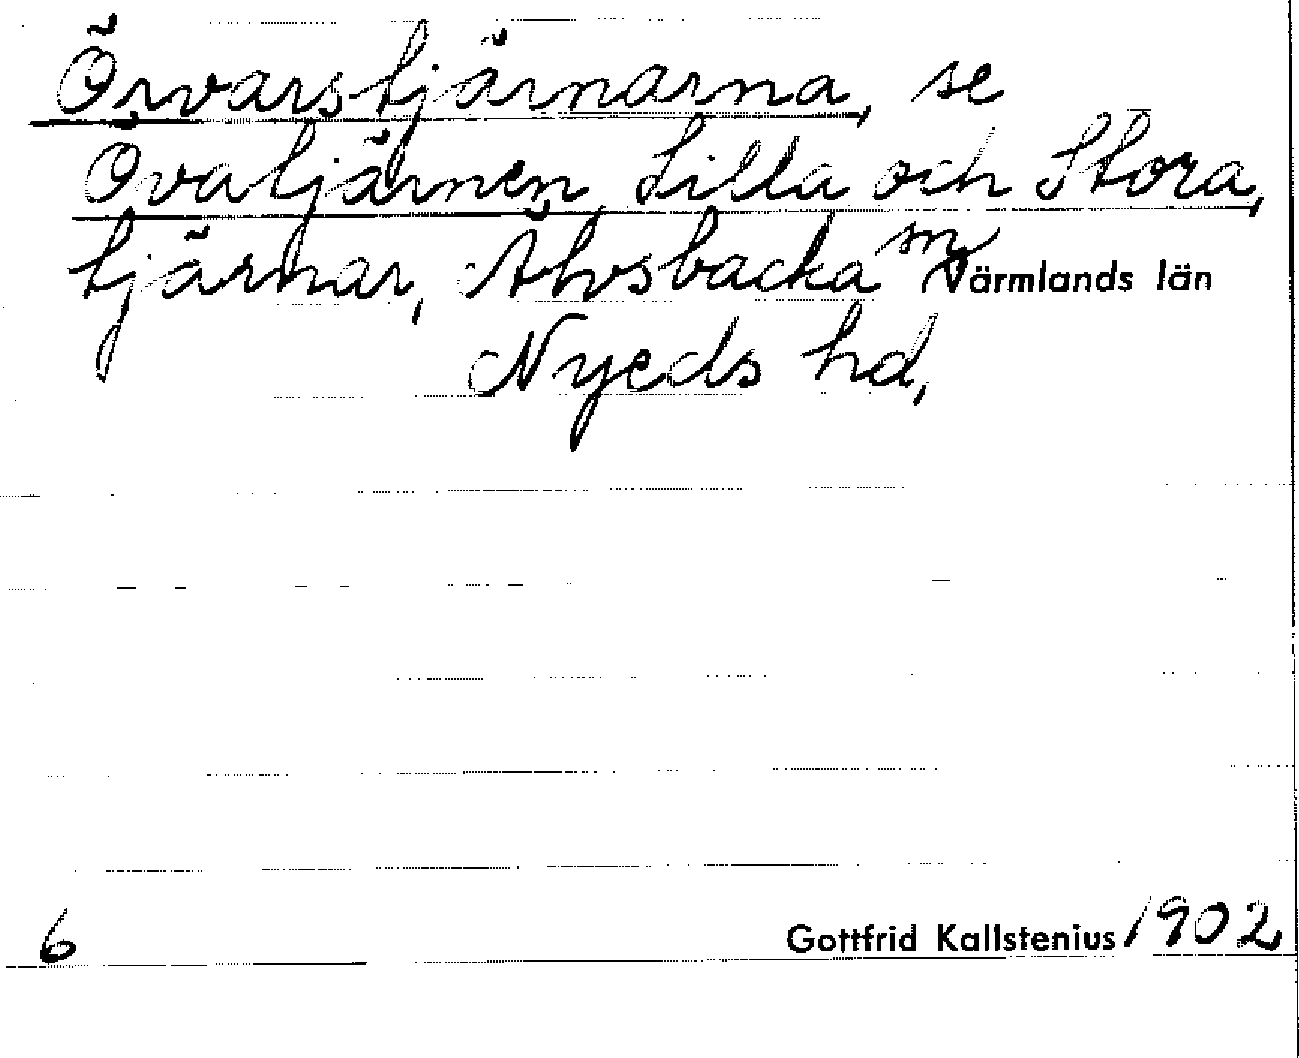 Örvarstjärnarna, se
Övatjärnen, Lilla och Stora,
tjärnar, Älvsbacka sn Värmlands län
Nyeds hd,
6 Gottfrid Kallstenius 1902